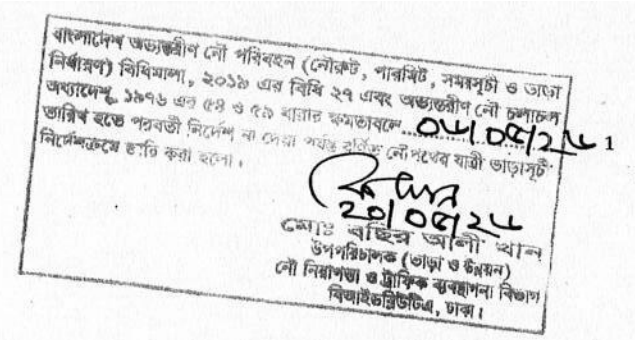 বাংলাদেশ অভ্যন্তরীণ নৌ পরিবহন (নৌরুট, পারমিট, সময়সূচী ও ভাড়া
নির্ধারণ) বিধিমালা, ২০১৯ এর বিধি ২৭ এবং অভ্যন্তরীণ নৌ চলাচল
অধ্যাদেশ, ১৯৭৬ এর ৫৪ ও ৫৯ ধারার ক্ষমতাবলে
তারিখ হতে পরবর্তী নির্দেশ না দেয়া পর্যন্ত বর্ণিত নৌপথের যাত্রী ভাড়াসূচী
নির্দেশক্রমে জারি করা হলো।
1
মোঃ বছির আলী খান
উপপরিচালক (ভাড়া ও উন্নয়ন)
নৌ নিরাপত্তা ও ট্রাফিক ব্যবস্থাপনা বিভাগ
বিআইডব্লিউটিএ, ঢাকা।